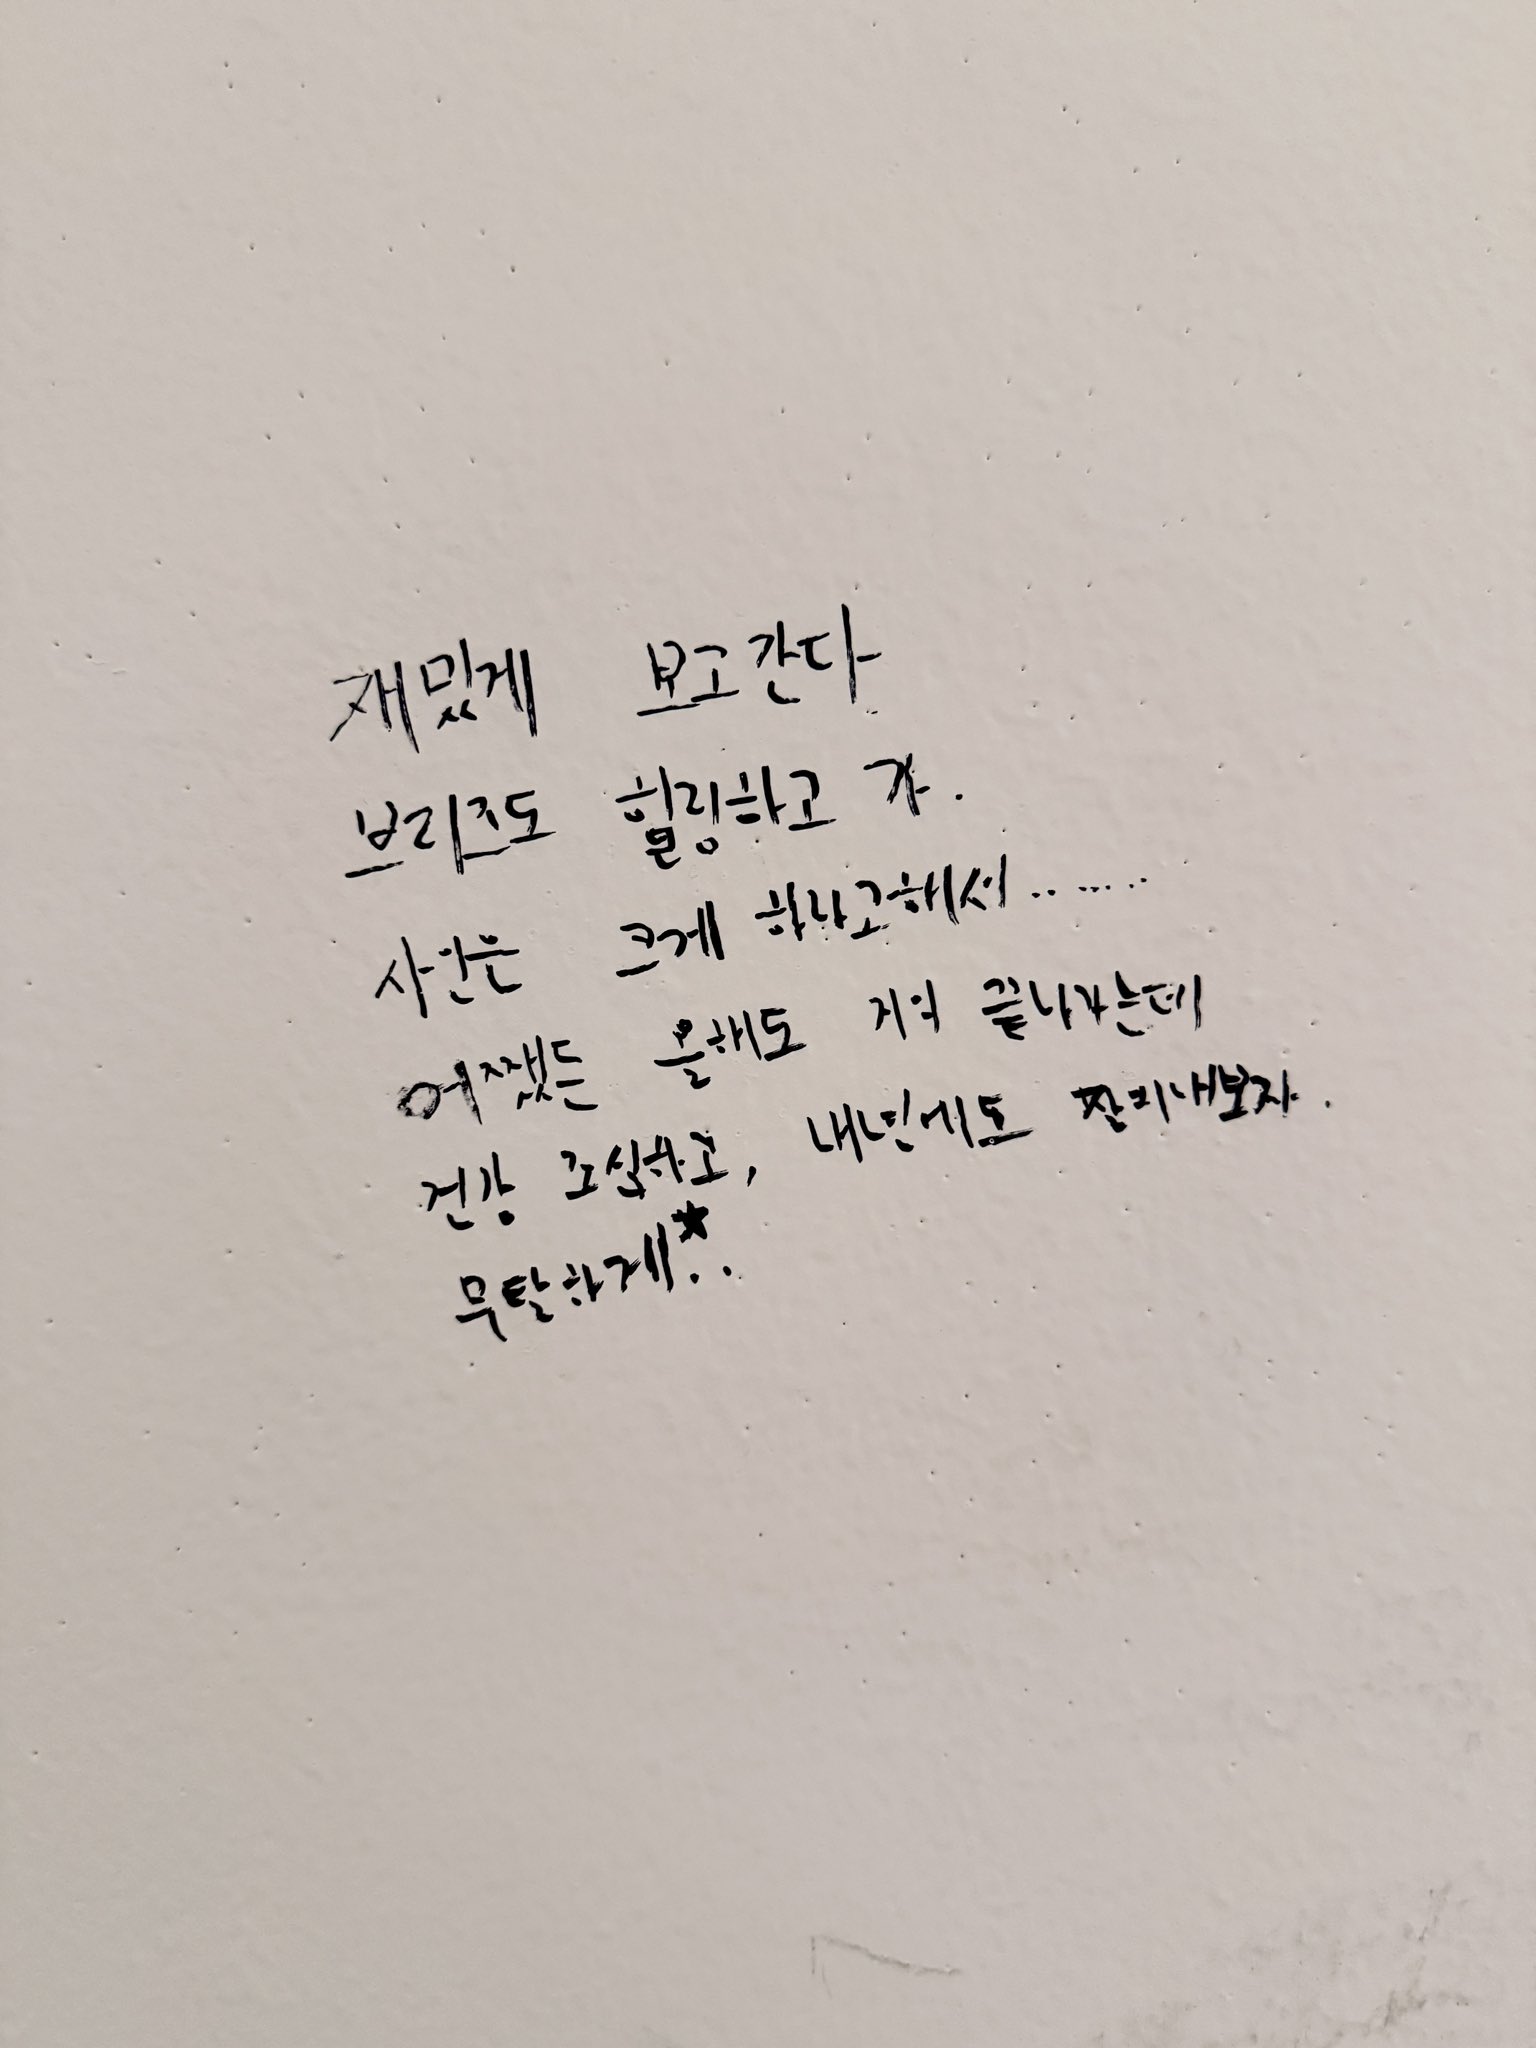 재밌게 보고간다
브리즈도 힐링하고 가.
사인은 크게 하라고해서........
어쨌든 올해도 끝나가는데
건강 조심하고, 내년에도 잘지내보자.
무탈하게★..